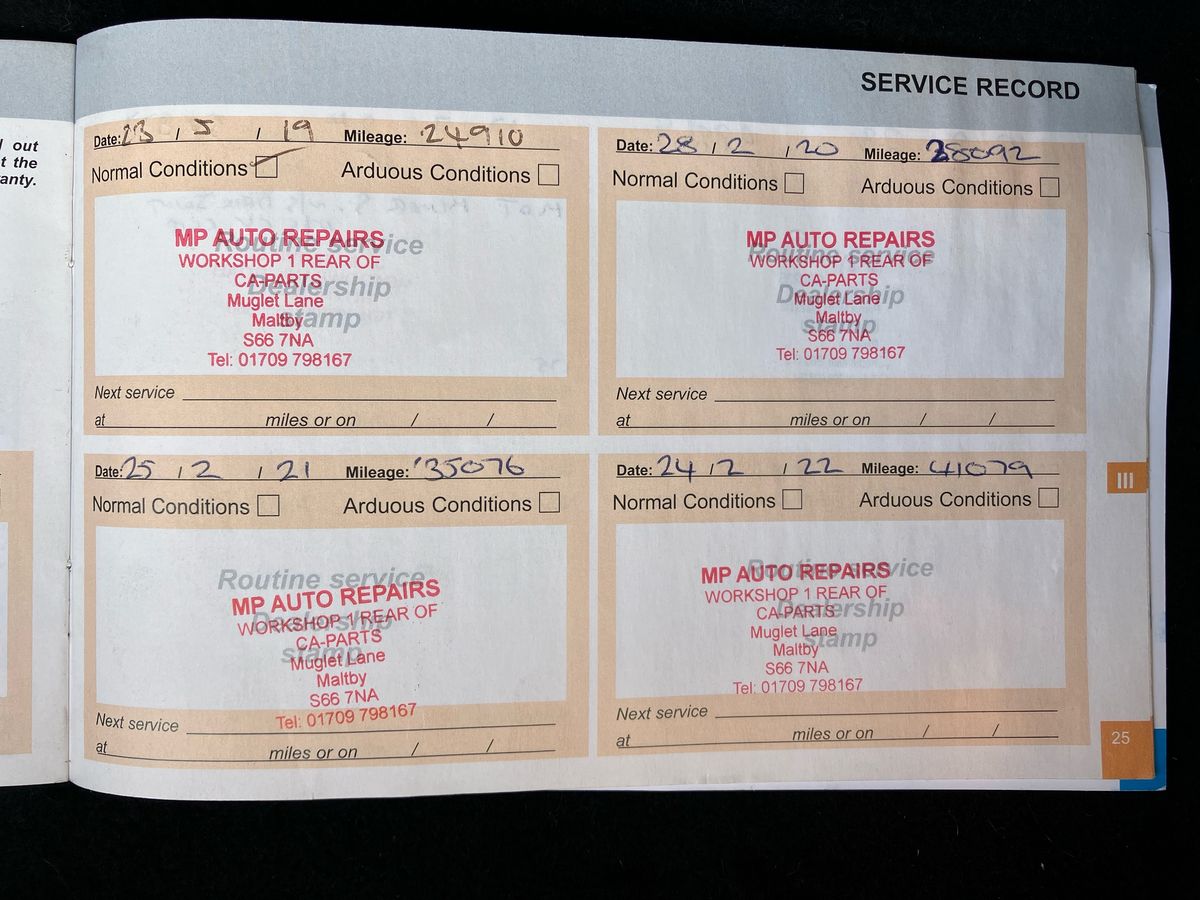 l out
t the
anty.
SERVICE RECORD
Date: 23 / 5 / 19 Mileage: 24910
Normal Conditions Arduous Conditions
Routine service
Dealership
stamp
MP AUTO REPAIRS
WORKSHOP 1 REAR OF
CA-PARTS
Muglet Lane
Maltby
S66 7NA
Tel: 01709 798167
Next service
at miles or on / /
Date: 28 / 2 / 20 Mileage: 28092
Normal Conditions Arduous Conditions
Routine service
Dealership
stamp
MP AUTO REPAIRS
WORKSHOP 1 REAR OF
CA-PARTS
Muglet Lane
Maltby
S66 7NA
Tel: 01709 798167
Next service
at miles or on / /
Date: 25 / 2 / 21 Mileage: 35076
Normal Conditions Arduous Conditions
Routine service
Dealership
stamp
MP AUTO REPAIRS
WORKSHOP 1 REAR OF
CA-PARTS
Muglet Lane
Maltby
S66 7NA
Tel: 01709 798167
Next service
at miles or on / /
Date: 24 / 2 / 22 Mileage: 41079
Normal Conditions Arduous Conditions
Routine service
Dealership
stamp
MP AUTO REPAIRS
WORKSHOP 1 REAR OF
CA-PARTS
Muglet Lane
Maltby
S66 7NA
Tel: 01709 798167
Next service
at miles or on / /
III
25